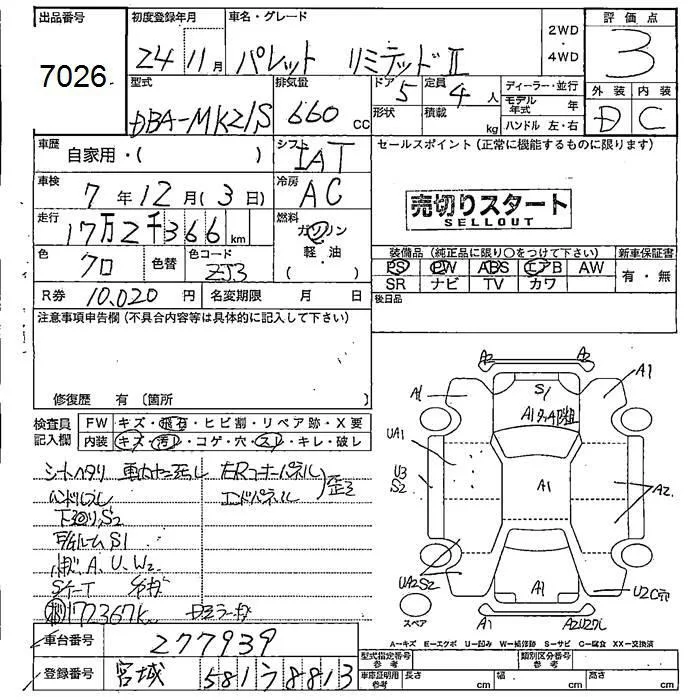 出品番号
7026
初度登録年月
24 11月
車名・グレード
パレット リミテッドⅡ
2WD
・
4WD
評価点
3
外装 内装
D C
型式
DBA-MK21S
排気量
660 CC
ドア 5
形状
定員 4 人
積載 kg
ディーラー・並行
モデル年式 年
ハンドル 左・右
車歴
自家用・( )
シフト
IAT
車検
7年12月(3日)
冷房
AC
走行
17万2千366km
燃料
ガソリン
軽・油
( )
色
クロ
色替
色コード
ZJ3
R券 10,020円
名変期限 月 日
セールスポイント(正常に機能するものに限ります)
売切りスタート
SELLOUT
装備品(純正品に限り○をつけて下さい)
新車保証書
PS PW ABS エアB AW
SR ナビ TV カワ
有・無
後日品
注意事項申告欄(不具合内容等は具体的に記入して下さい)
修復歴 有 (箇所 )
検査員記入欄
FW キズ・飛石・ヒビ割・リペア跡・X要
内装 キズ・汚レ・コゲ・穴・スレ・キレ・破レ
シートヘタリ
ハンドルスレ
下廻りS2
エンドパネル
歪
A、U、W2
172367k
車台番号
277939
登録番号
宮城 581 う 8813
A2 A2
A1 S1 A1
UA1
U3
S2
A1
A2
UA2 S2
A1
スペア
A1
A-キズ E-エクボ U-凹み W-補修跡 S-サビ C-腐食 XX-交換済
型式指定番号
参考
類別区分番号
参考
車庫証明用
参考
長さ cm
幅 cm
高さ cm